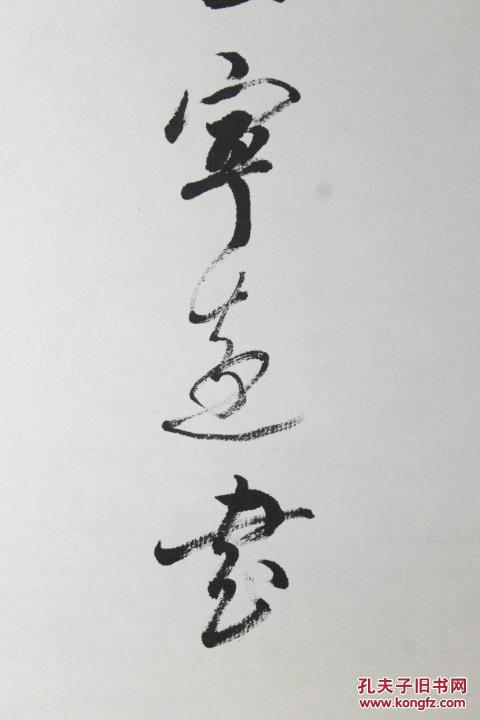 寧遠書
孔夫子旧书网
www.kongfz.com